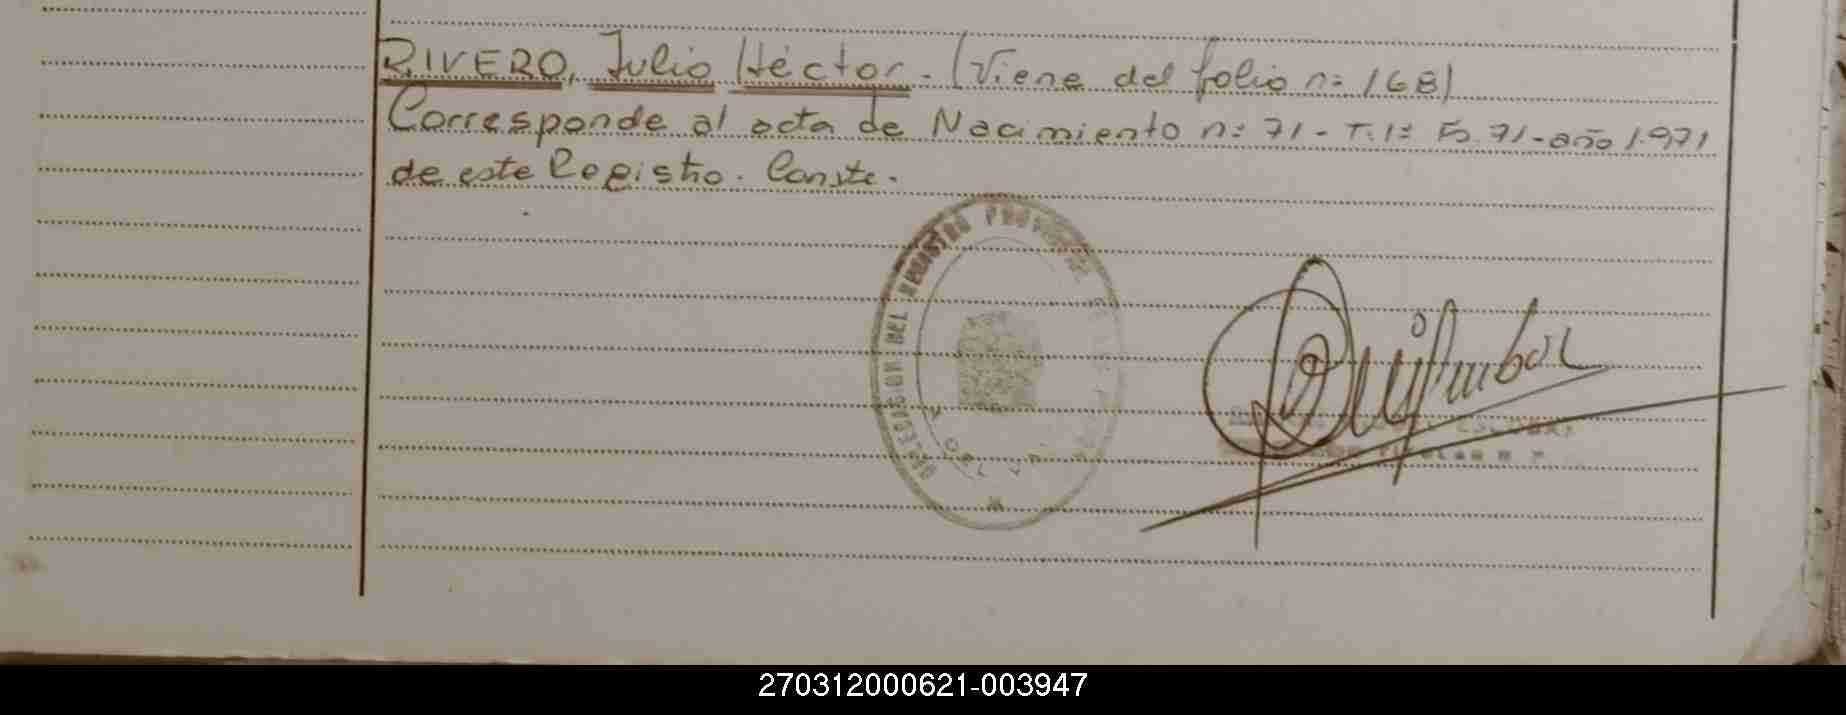 RIVERO, Julio Héctor. (Viene del folio n= 168)
Corresponde al acta de Nacimiento n= 71 - T. 1= Fº 71 - año 1.971
de este Registro. Conste.
DELEGACION DEL REGISTRO PROVINCIAL
270312000621-003947